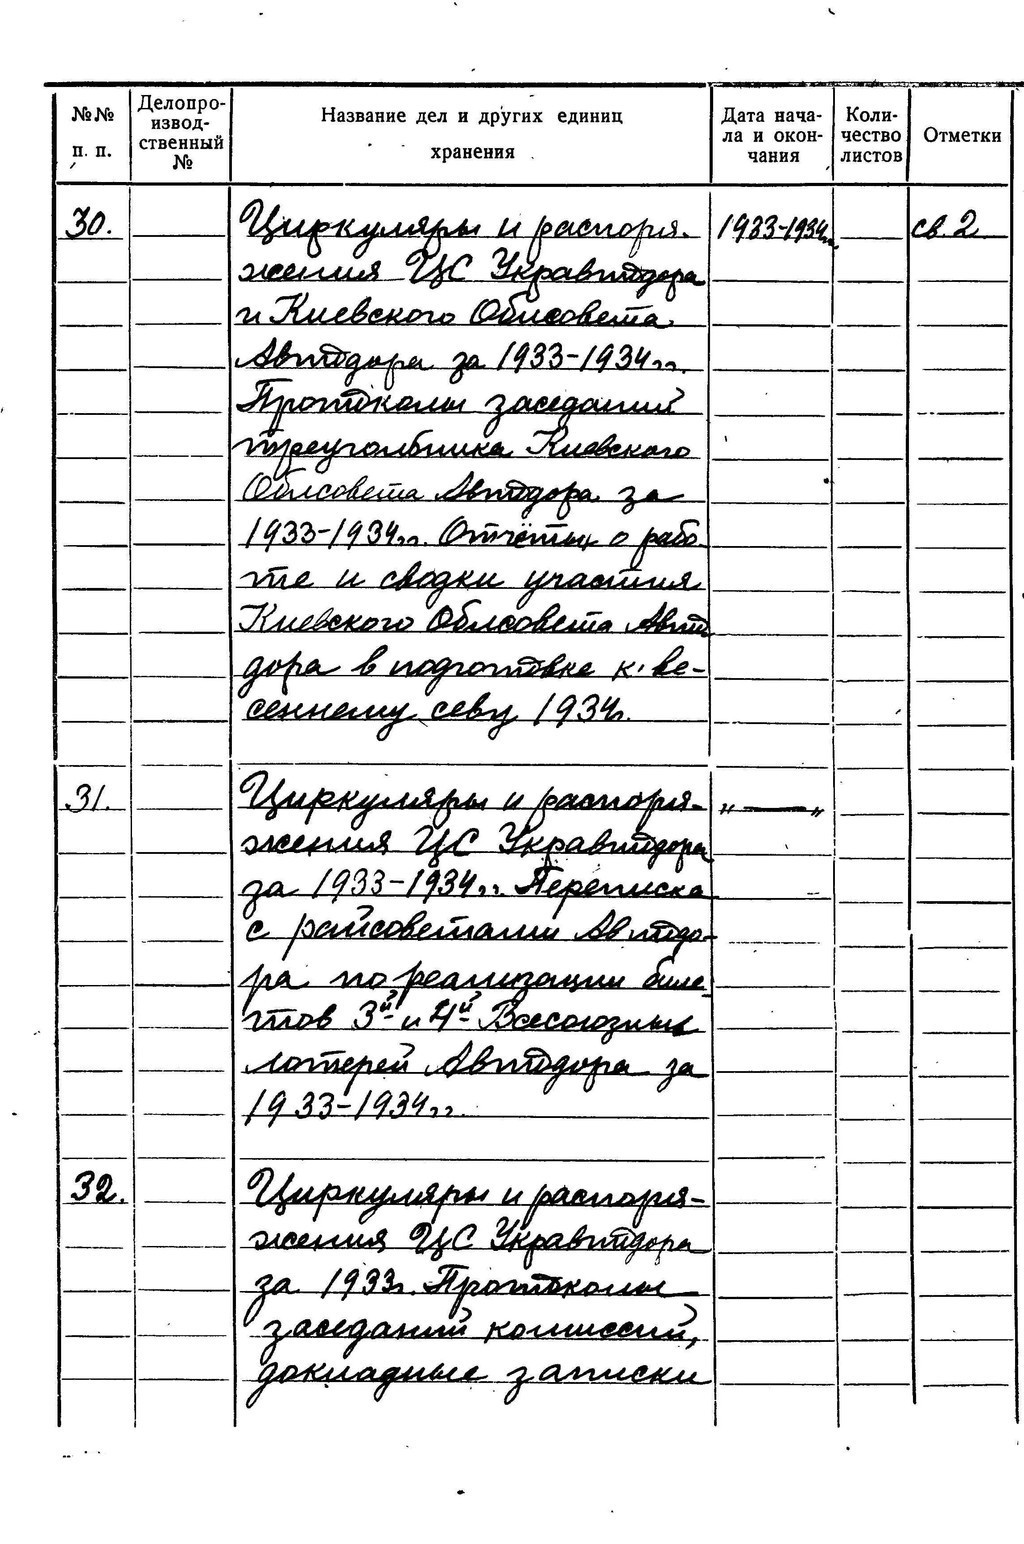 №№ п. п. Делопро-извод-ственный № Название дел и других единиц хранения Дата нача-ла и окон-чания Коли-чество листов Отметки
30. Циркуляры и распоря- 1933-1934гг. св. 2
жения ЦС Укравтодора
и Киевского Облсовета
Автодора за 1933-1934гг.
Протоколы заседаний
треугольника Киевского
Облсовета Автодора за
1933-1934гг. Отчёты о рабо-
те и сводки участия
Киевского Облсовета Авто
дора в подготовке к ве-
сеннему севу 1934г.
31. Циркуляры и распоря- „ — „
жения ЦС Укравтодора
за 1933-1934гг. Переписка
с райсоветами Автодо-
ра по реализации биле-
тов 3й и 4й Всесоюзных
лотерей Автодора за
1933-1934гг.
32. Циркуляры и распоря-
жения ЦС Укравтодора
за 1933г. Протоколы
заседаний комиссий,
докладные записки